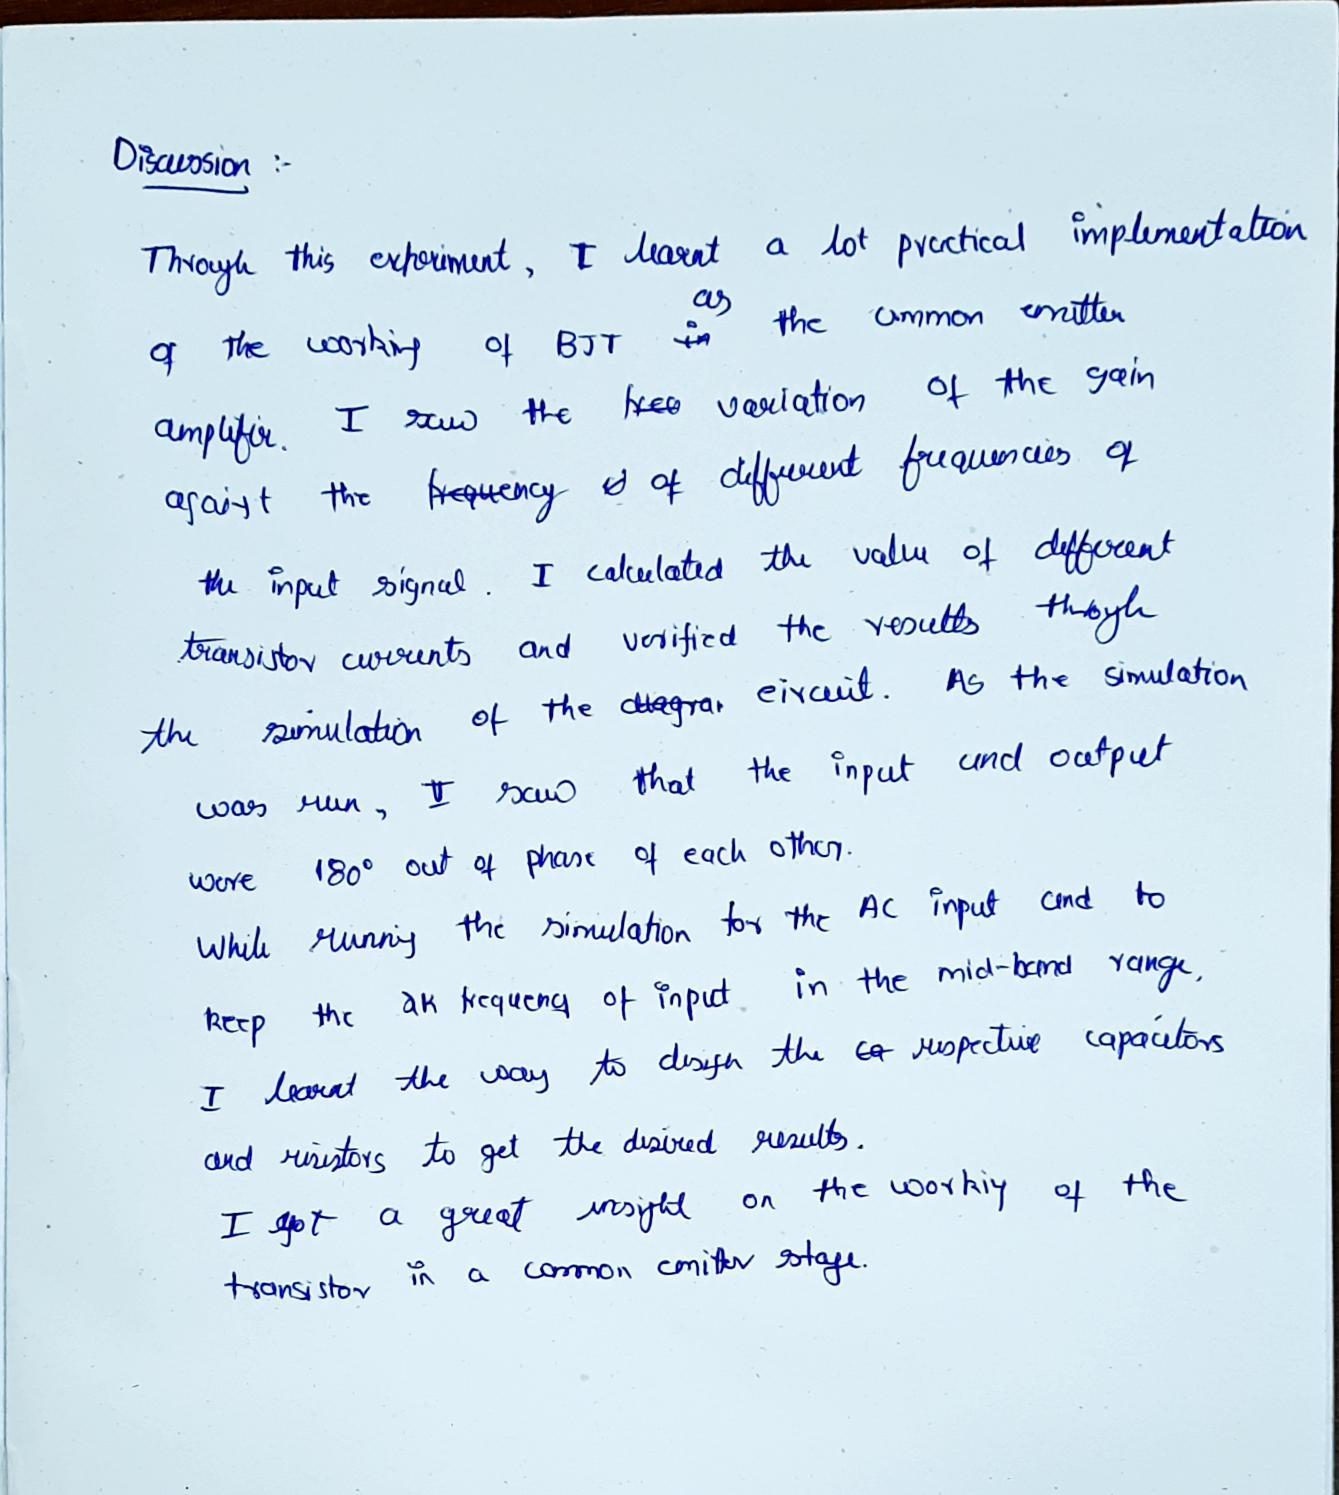 Discussion :-
Through this experiment, I learnt a lot practical implementation
as
of the working of BJT in the common emitter
amplifir. I saw the freq variation of the gain
against the frequency of different frequencies of
the input signal. I calculated the value of different
transistor currents and verified the results through
the simulation of the diagra circuit. As the simulation
was run, I saw that the input and output
were 180° out of phase of each other.
While running the simulation for the AC input and to
keep the frequency of input in the mid-band range,
I learnt the way to design the ca respective capacitors
and resistors to get the desired results.
I got a great insight on the working of the
transistor in a common emitter stage.